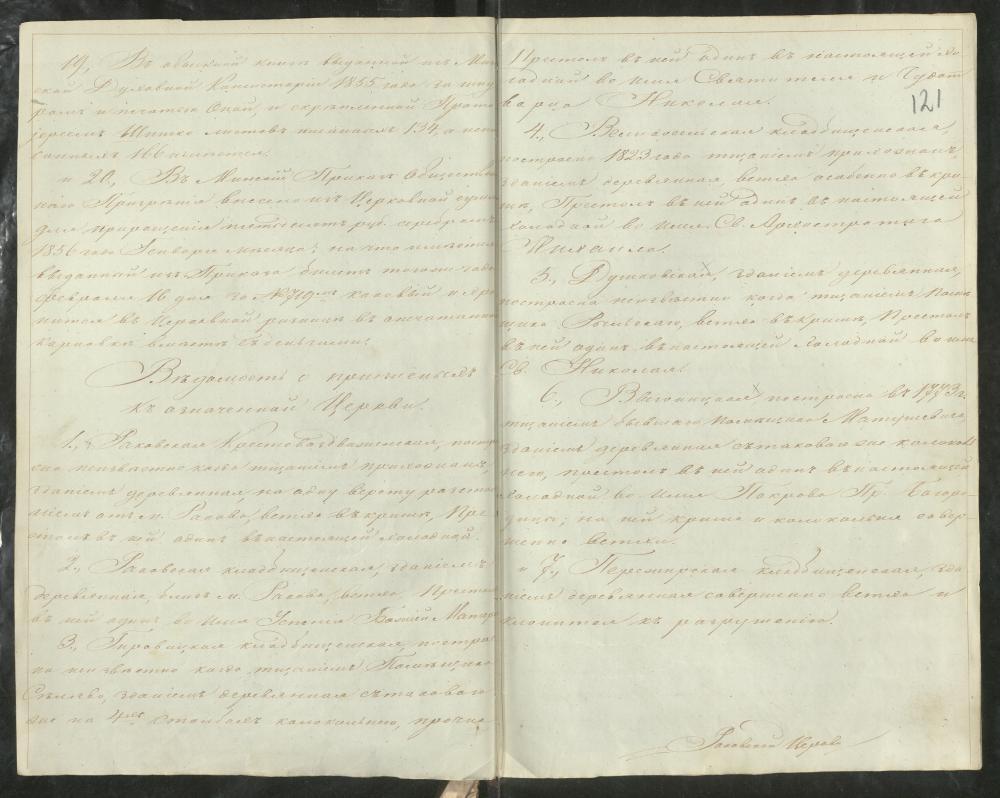 19, Въ обыскной книгѣ выданной изъ Мин
ской Духовной Консисторіи 1855 года за шну
ромъ и печатью Оной, и скрѣпленной Прото
іереемъ листовъ писанныхъ 134, а непи
санныхъ 166 имѣется.
и 20., Въ Минскій Приказъ Обществен
наго Призрѣнія внесено изъ Церковной суммы
для приращенія пятьдесятъ руб. серебромъ
1856 года Генваря мѣсяца; на что имѣется
выданный изъ Приказа билетъ того же года
Февраля 16 дня за № 719мъ каковый и хра
нится въ Церковной ризницѣ въ
вмѣстѣ съ деньгами.
Вѣдомость о приписныхъ
къ означенной Церкви.
1., Раковская Кресто-Воздвиженская, постро
ена неизвѣстно когда тщаніемъ прихожанъ,
зданіемъ деревянная на одну версту разсто
яніемъ отъ м. Ракова, ветха въ крышѣ, Пре
столъ въ ней одинъ въ настоящей холодной.
2., Раковская кладбищенская, зданіемъ
деревянная, близъ м. Ракова, ветха, Престолъ
въ ней одинъ во имя Успенія Божіей Матери
3., кладбищенская, построе
на неизвѣстно когда тщаніемъ Помѣщика
зданіемъ деревянная съ таковою
же на 4хъ столбахъ колокольнею, прочна
Престолъ въ ней одинъ въ настоящей хо
лодной во имя Святителя и Чудот
ворца Николая.
121
4., кладбищенская,
построена 1823 года тщаніемъ прихожанъ,
зданіемъ деревянная, ветха особенно въ кры
шѣ, Престолъ въ ней одинъ въ настоящей
холодной во имя Св. Архистратига
Михаила.
5., Душковская, зданіемъ деревянная,
построена неизвѣстно когда тщаніемъ Помѣ
щика ветха въ крышѣ, Престолъ
въ ней одинъ въ настоящей холодной во имя
Св. Николая.
6., Выгоницкая построена въ 1773 г.
тщаніемъ бывшаго помѣщика
зданіемъ деревянная съ таковою же колоколь
нею, престолъ въ ней одинъ въ настоящей
холодной во имя Покрова Пр. Богоро
дицы; на ней крыша и колокольня совер
шенно ветхи.
и 7., Пережирская кладбищенская, зда
ніемъ деревянная совершенно ветха и
клонится къ разрушенію.
Раковской Церкви